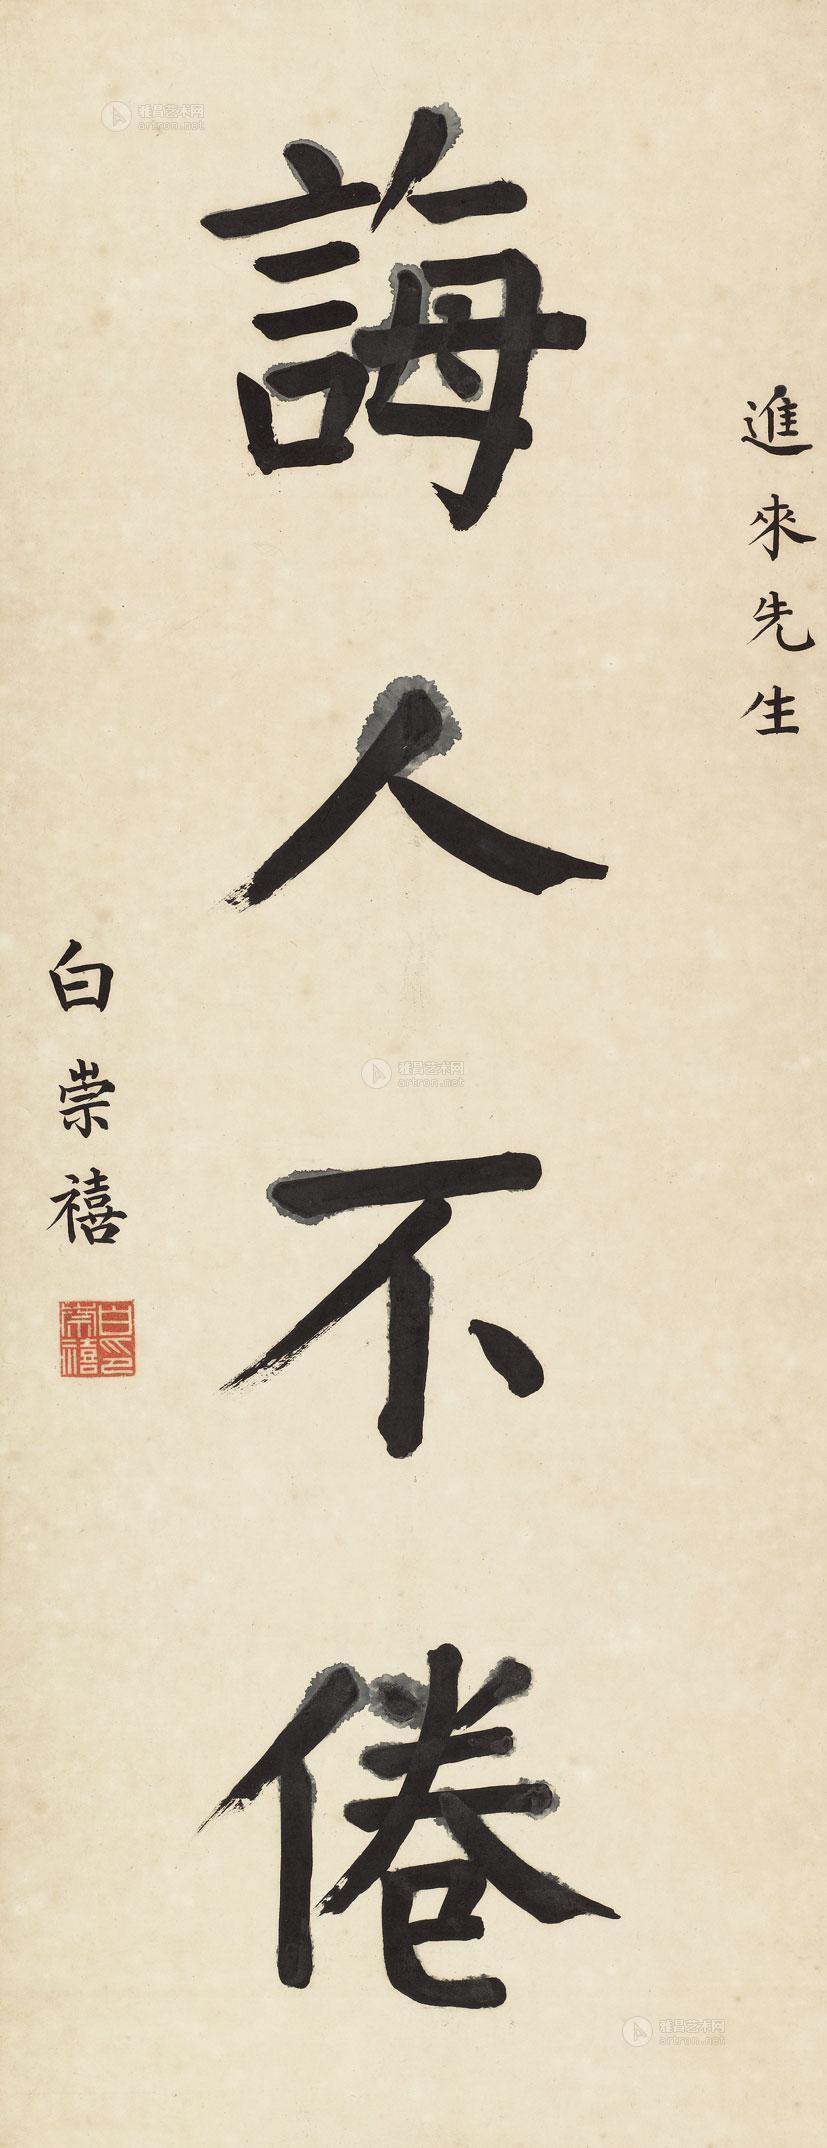 進來先生
誨人不倦
白崇禧
白崇禧印
雅昌艺术网
artron.net
雅昌艺术网
artron.net
雅昌艺术网
artron.net